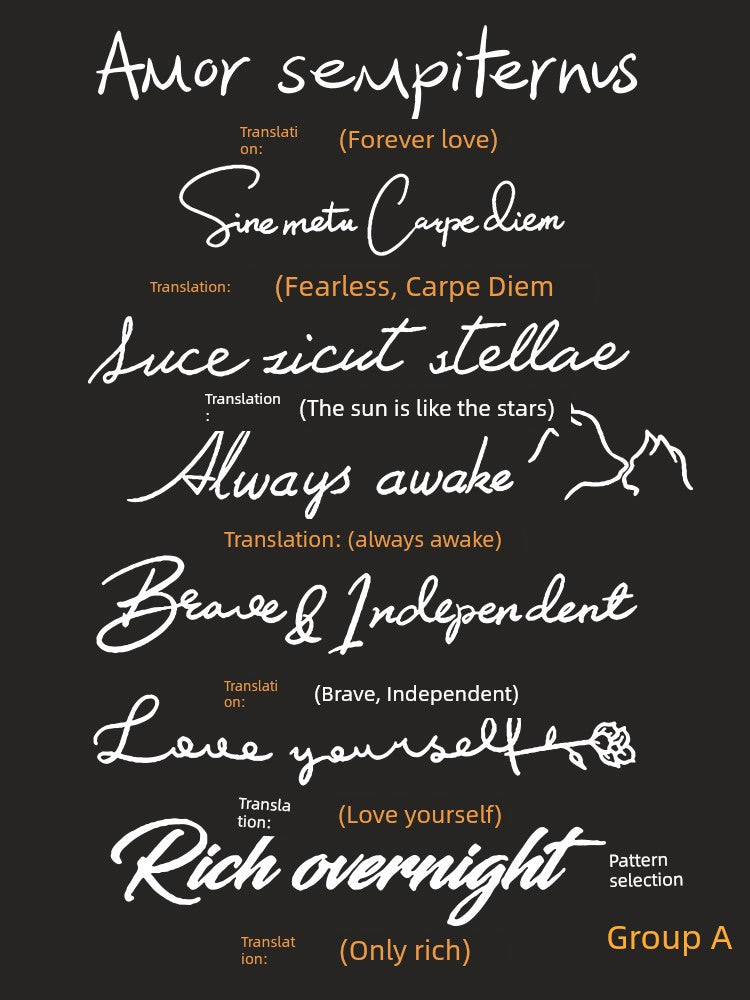 Amor sempiternus
Translati
on:
(Forever love)
Sine metu Carpe diem
Translation:
(Fearless, Carpe Diem
Luce sicut stellae
Translation
:
(The sun is like the stars)
Always awake
Translation: (always awake)
Brave & Independent
Translati
on:
(Brave, Independent)
Love yourself
Transla
tion:
(Love yourself)
Rich overnight
Pattern
selection
Group A
Translat
ion:
(Only rich)